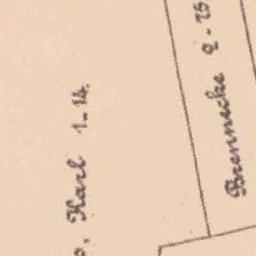 Karl 1-14.
Brennecke 2-25